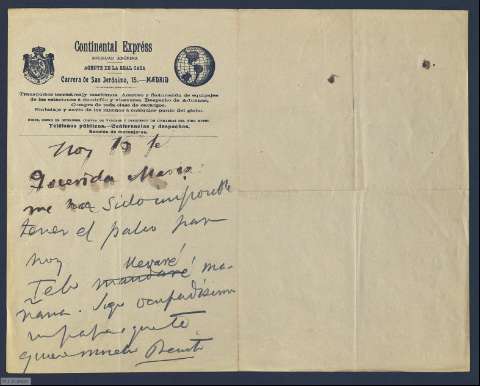 Continental Expréss
SOCIEDAD ANÓNIMA
AGENTE DE LA REAL CASA
Carrera de San Jerónimo, 15.—MADRID
Transportes terrestres y marítimos. Acarreo y facturación de equipajes
de las estaciones á domicilio y viceversa. Despacho de Aduanas,
Cargos de toda clase de encargos.
Embalaje y envío de los mismos á cualquier punto del globo.
Teléfonos públicos.—Conferencias y despachos.
Servicio de mensajeros.
Hoy 15
Querida María:
me ha sido imposible
tener el palco para
hoy
llevaré
Te lo mandaré ma-
ñana. Sigo ocupadísimo
tu papá q. te
quiere mucho Benito